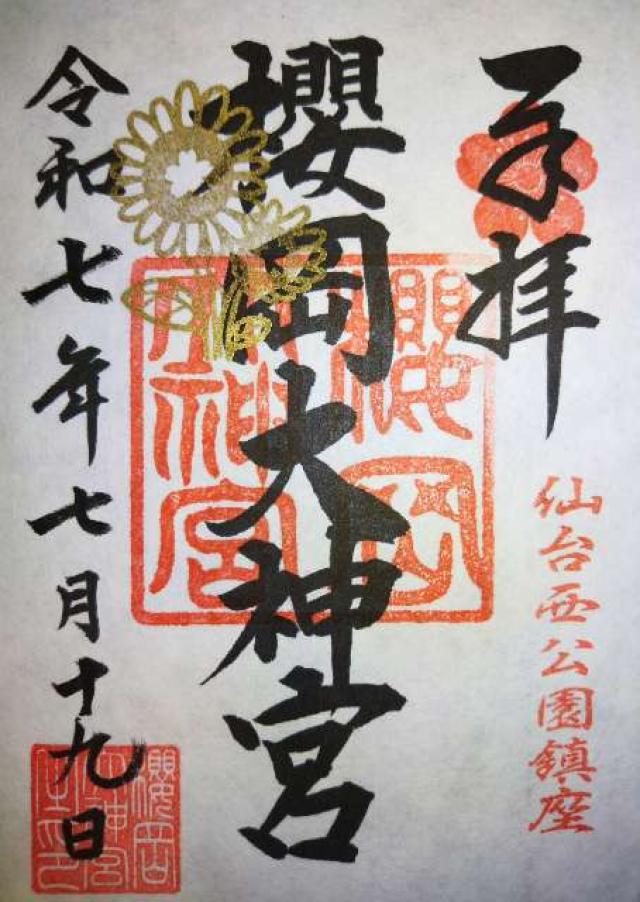 奉拝
仙台西公園鎮座
櫻岡大神宮
櫻岡大神宮
令和七年七月十九日